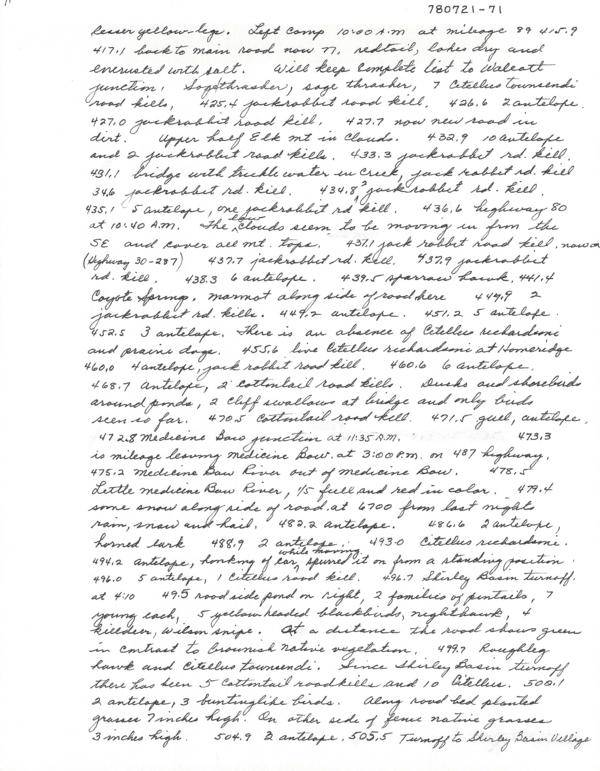 780721-71
lesser yellow-legs. Left camp 10:00 A.M at mileage 89 415.9
417.1 back to main road now 77, redtail, lakes dry and
encrusted with salt. Will keep complete list to Walcott
junction, Sagethrasher, sage thrasher, 7 Citellus townsendi
road kills, 425.4 jackrabbit road kill. 426.6 2 antelope.
427.0 jackrabbit road kill. 427.7 now new road in
dirt. Upper half Elk mt in clouds. 432.9 10 antelope
and 2 jackrabbit road kills. 433.3 jackrabbit rd. kill.
431.1 bridge with trickle water in creek, jack rabbit rd. kill
34.6 jackrabbit rd. kill. 434.8 jackrabbit rd. kill.
435.1 5 antelope, one jackrabbit rd kill. 436.6 highway 80
at 10:40 A.M. The low clouds seem to be moving in from the
SE and cover all mt. tops. 437.1 jack rabbit road kill, now on
(Highway 30-287) 437.7 jackrabbit rd. kill. 437.9 jackrabbit
rd. kill. 438.3 6 antelope. 439.5 sparrow hawk, 441.4
Coyote Springs, marmot along side of road here 447.9 2
jackrabbit rd. kills. 449.2 antelope. 451.2 5 antelope.
452.5 3 antelope. There is an absence of Citellus richardsoni
and prairie dogs. 455.6 live Citellus richardsoni at Homeridge
460.0 4 antelope, jack rabbit road kill. 460.6 6 antelope.
468.7 Antelope, 2 cottontail road kills. Ducks and shorebirds
around ponds, 2 cliff swallows at bridge and only birds
seen so far. 470.5 cottontail road kill. 471.5 gull, antelope.
472.8 Medicine Bow junction at 11:35 A.M. 473.3
is mileage leaving Medicine Bow at 3:00 P.M. on 487 highway.
475.2 Medicine Bow River out of Medicine Bow. 478.5
Little Medicine Bow River, 1/5 full and red in color. 479.4
some snow along side of road at 6700 from last nights
rain, snow and hail. 482.2 antelope. 486.6 2 antelope,
horned lark 488.9 2 antelope. 493.0 Citellus richardsoni.
494.2 antelope, honking of car while moving spurred it on from a standing position.
496.0 5 antelope, 1 Citellus road kill. 496.7 Shirley Basin turnoff.
at 4:10 49.5 road side pond on right, 2 families of pintails, 7
young each, 5 yellow headed blackbirds, nighthawk, 4
killdeer, Wilson snipe. At a distance the road shows green
in contrast to brownish native vegetation. 499.7 Roughleg
hawk and Citellus townsendi. Since Shirley Basin turnoff
there has been 5 cottontail roadkills and 10 Citellus. 500.1
2 antelope, 3 buntinglike birds. Along road bed planted
grasses 7 inches high. On other side of fence native grasses
3 inches high. 504.9 2 antelope. 505.5 Turnoff to Shirley Basin Village